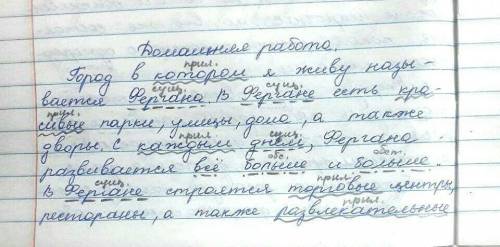 Домашняя работа.
прил.
Город в котором я живу назы-
сущ. сущ.
вается Фергана. В Фергане есть кра-
прил.
сивые парки, улицы, дома, а также
прил. сущ.
дворы. С каждым днём, Фергана
обс. обст.
развивается всё больше и больше.
сущ. прил.
В Фергане строятся торговые центры,
прил.
рестораны, а также развлекательные